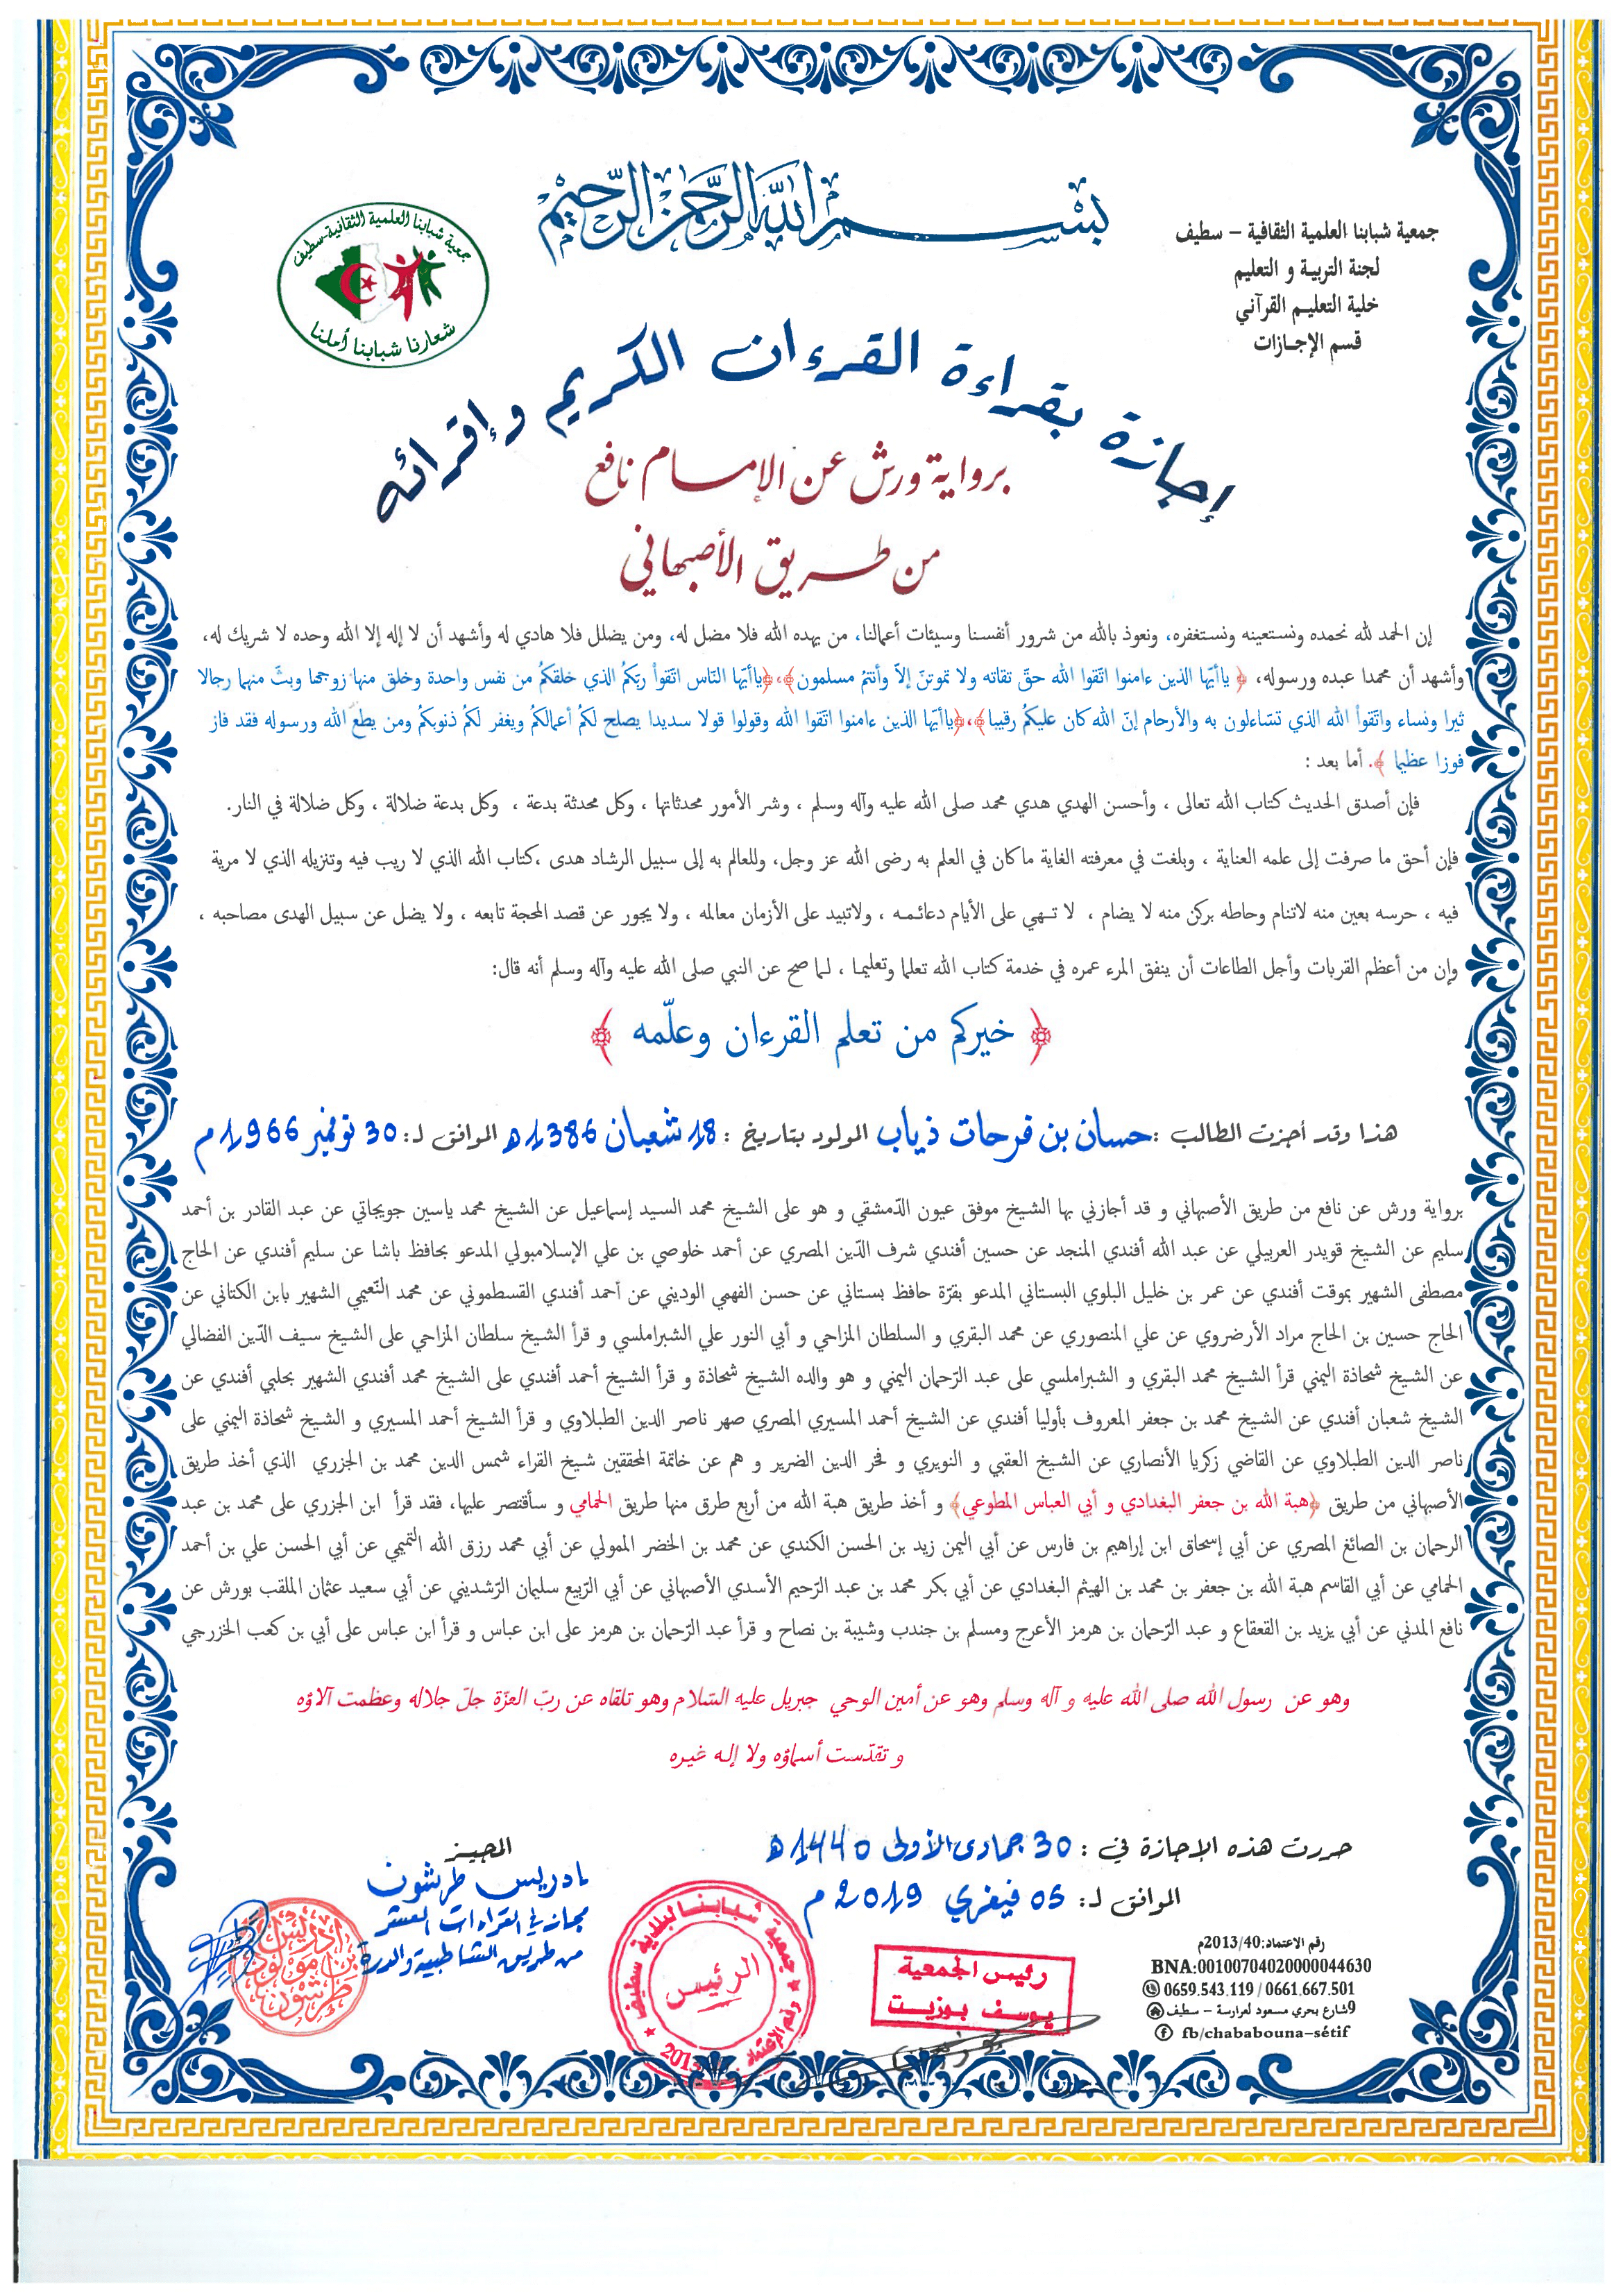 بسم الله الرحمن الرحيم
جمعية شبابنا العلمية الثقافية – سطيف
لجنة التربية و التعليم
خلية التعليم القرآني
قسم الإجازات
جمعية شبابنا العلمية الثقافية-سطيف
شعارنا شبابنا أملنا
إجازة بقراءة القرءان الكريم وإقرائه
برواية ورش عن الإمام نافع
من طريق الأصبهاني
إن الحمد لله نحمده ونستعينه ونستغفره، ونعوذ بالله من شرور أنفسنا وسيئات أعمالنا، من يهده الله فلا مضل له، ومن يضلل فلا هادي له وأشهد أن لا إله إلا الله وحده لا شريك له،
وأشهد أن محمدا عبده ورسوله، ﴿ ياأيّها الذين ءامنوا اتّقوا الله حقّ تقاته ولا تموتنّ إلاّ وأنتمُ مسلمون﴾،﴿ياأيّها النّاس اتّقواْ ربّكمُ الذي خلقكمُ من نفس واحدة وخلق منها زوجها وبثّ منهما رجالا
ثيرا ونساء واتّقواْ الله الذي تسّاءلون به والأرحام إنّ الله كان عليكمُ رقيبا﴾،﴿ياأيّها الذين ءامنوا اتّقوا الله وقولوا قولا سديدا يصلح لكمُ أعمالكمُ ويغفر لكمُ ذنوبكمُ ومن يطع الله ورسوله فقد فاز
فوزا عظيما ﴾. أما بعد :
فإن أصدق الحديث كتاب الله تعالى ، وأحسن الهدي هدي محمد صلى الله عليه وآله وسلم ، وشر الأمور محدثاتها ، وكل محدثة بدعة ، وكل بدعة ضلالة ، وكل ضلالة في النار.
فإن أحق ما صرفت إلى علمه العناية ، وبلغت في معرفته الغاية ماكان في العلم به رضى الله عز وجل، وللعالم به إلى سبيل الرشاد هدى ،كتاب الله الذي لا ريب فيه وتنزيله الذي لا مرية
فيه ، حرسه بعين منه لاتنام وحاطه بركن منه لا يضام ، لا تـهي على الأيام دعائـمـه ، ولاتبيد على الأزمان معالمه ، ولا يجور عن قصد المحجة تابعه ، ولا يضل عن سبيل الهدى مصاحبه ،
وإن من أعظم القربات وأجل الطاعات أن ينفق المرء عمره في خدمة كتاب الله تعلما وتعليمـا ، لـما صح عن النبي صلى الله عليه وآله وسلم أنه قال:
﴿ خيركم من تعلم القرءان وعلّمه ﴾
هذا وقد أجزت الطالب :حسان بن فرحات ذياب المولود بتاريخ : 18 شعبان 1386ه الموافق لـ: 30 نوفمبر 1966م
برواية ورش عن نافع من طريق الأصبهاني و قد أجازني بها الشيخ موفق عيون الدّمشقي و هو على الشيخ محمد السيد إسماعيل عن الشيخ محمد ياسين جويجاتي عن عبد القادر بن أحمد
سليم عن الشيخ قويدر العربيلي عن عبد الله أفندي المنجد عن حسين أفندي شرف الدّين المصري عن أحمد خلوصي بن علي الإسلامبولي المدعو بحافظ باشا عن سليم أفندي عن الحاج
مصطفى الشهير بموقت أفندي عن عمر بن خليل البلوي البستاني المدعو بقرّة حافظ بستاني عن حسن الفهمي الوديني عن أحمد أفندي القسطموني عن محمد النّعيمي الشهير بابن الكتاني عن
الحاج حسين بن الحاج مراد الأرضروي عن علي المنصوري عن محمد البقري و السلطان المزاحي و أبي النور علي الشبراملسي و قرأ الشيخ سلطان المزاحي على الشيخ سيف الدّين الفضالي
عن الشيخ شحاذة اليمني قرأ الشيخ محمد البقري و الشبراملسي على عبد الرّحمان اليمني و هو والده الشيخ شحاذة و قرأ الشيخ أحمد أفندي على الشيخ محمد أفندي الشهير بحلبي أفندي عن
الشيخ شعبان أفندي عن الشيخ محمد بن جعفر المعروف بأوليا أفندي عن الشيخ أحمد المسيري المصري صهر ناصر الدين الطبلاوي و قرأ الشيخ أحمد المسيري و الشيخ شحاذة اليمني على
ناصر الدين الطبلاوي عن القاضي زكريا الأنصاري عن الشيخ العقبي و النويري و فخر الدين الضرير و هم عن خاتمة المحققين شيخ القراء شمس الدين محمد بن الجزري الذي أخذ طريق
الأصبهاني من طريق ﴿هبة الله بن جعفر البغدادي و أبي العباس المطوعي﴾ و أخذ طريق هبة الله من أربع طرق منها طريق الحمامي و سأقتصر عليها، فقد قرأ ابن الجزري على محمد بن عبد
الرحمان بن الصائغ المصري عن أبي إسحاق ابن إبراهيم بن فارس عن أبي اليمن زيد بن الحسن الكندي عن محمد بن الخضر الممولي عن أبي محمد رزق الله التميمي عن أبي الحسن علي بن أحمد
الحمامي عن أبي القاسم هبة الله بن جعفر بن محمد بن الهيثم البغدادي عن أبي بكر محمد بن عبد الرّحيم الأسدي الأصبهاني عن أبي الرّبيع سليمان الرّشديني عن أبي سعيد عثمان الملقب بورش عن
نافع المدني عن أبي يزيد بن القعقاع و عبد الرّحمان بن هرمز الأعرج ومسلم بن جندب وشيبة بن نصاح و قرأ عبد الرّحمان بن هرمز على ابن عباس و قرأ ابن عباس على أبي بن كعب الخزرجي
وهو عن رسول الله صلى الله عليه و آله وسلم وهو عن أمين الوحي جبريل عليه السّلام وهو تلقاه عن ربّ العزّة جلّ جلاله وعظمت آلاؤه
و تقدّست أسماؤه ولا إله غيره
حررت هذه الإجازة في : 30 جمادى الأولى 1440 ه
الموافق لـ: 05 فيفري 2019 م
المجيـز
إدريس طرشون
مجاز في القراءات العشر
من طريق الشاطبية والدرة
إدريس بن مولود طرشون
جمعية شبابنا لبلدية سطيف
الرئيس
رقم الإعتماد 2013
رئيس الجمعية
يوسف بوزيت
رقم الاعتماد:2013/40م
BNA:00100704020000044630
0659.543.119 / 0661.667.501
9شارع بحري مسعود لعرارسة – سطيف
fb/chababouna-sétif